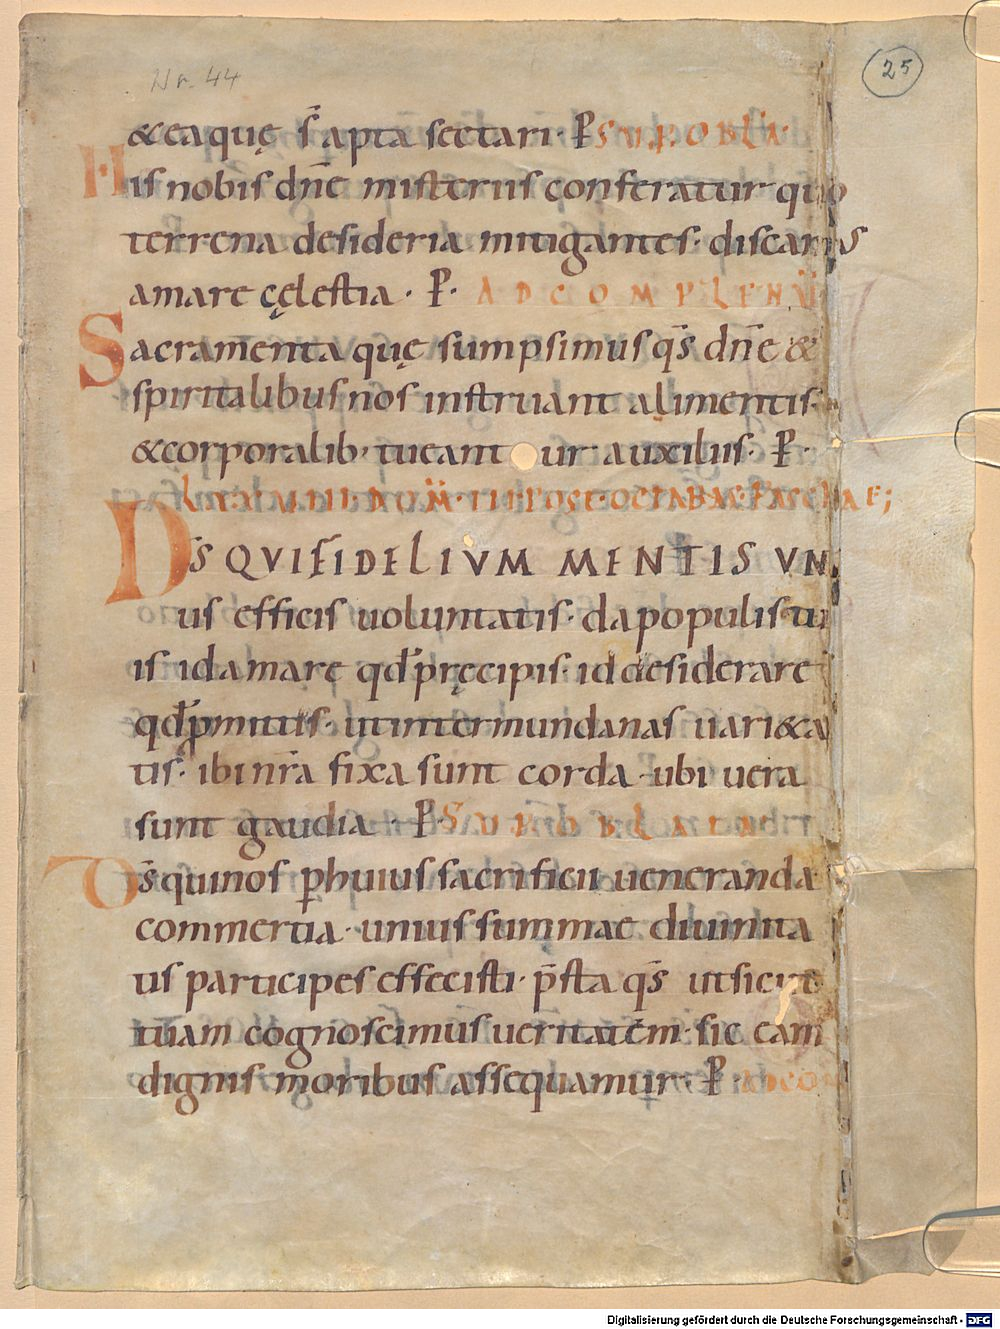 Nr. 44
25
&eaquę s̄ apta sectari · P̱ SUP. OBLA·
His nobis dn̄e misteriis conferatur quo
terrena desideria mitigantes · discamus
amare cęlestia · P̱ · AD COMPLENDŪ
Sacramenta quę sumpsimus qs̄ dn̄e &
spiritalibus nos instruant alimentis ·
& corporalib· tueantur auxiliis · P̱ ·
DOM̄ · IIII POST OCTABAS PASCHAE;
DS̄ QUI FIDELIUM MENTIS UN
ius efficis uoluntatis · da populis tu
is id amare qd̄ pręcipis · id desiderare
qd̄ p̄mittis · ut inter mundanas uari&a
tis · ibi nr̄a fixa sunt corda · ubi uera
sunt gaudia · P̱ SUP OBLATA
Ds̄ qui nos p̱ huius sacrificii ueneranda
commertia · unius summae diuinita
tis participes effecisti · p̄sta qs̄ ut sicut
tuam cognoscimus ueritatem · sic eam
dignis moribus assequamur · P̱ · AD CO
Digitalisierung gefördert durch die Deutsche Forschungsgemeinschaft - DFG